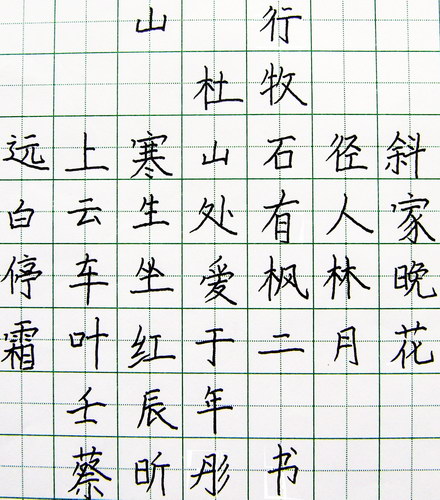 山行
杜牧
远上寒山石径斜
白云生处有人家
停车坐爱枫林晚
霜叶红于二月花
壬辰年
蔡昕彤书